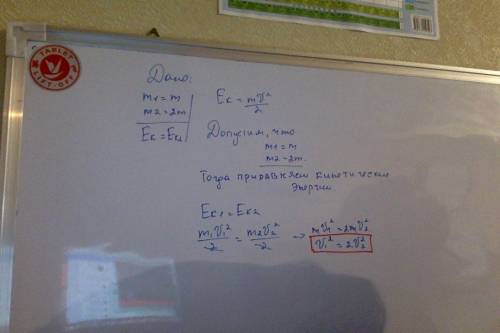 TABLET
LIFT-OFF
Дано:
m1 = m
m2 = 2m
Eк = Eк2
Eк = mV²/2
Допустим, что
m1 = m
m2 = 2m.
Тогда приравняем кинетические
энергии
Eк1 = Eк2
m1V1²/2 = m2V2²/2 → mV1² = 2mV2²
V1² = 2V2²